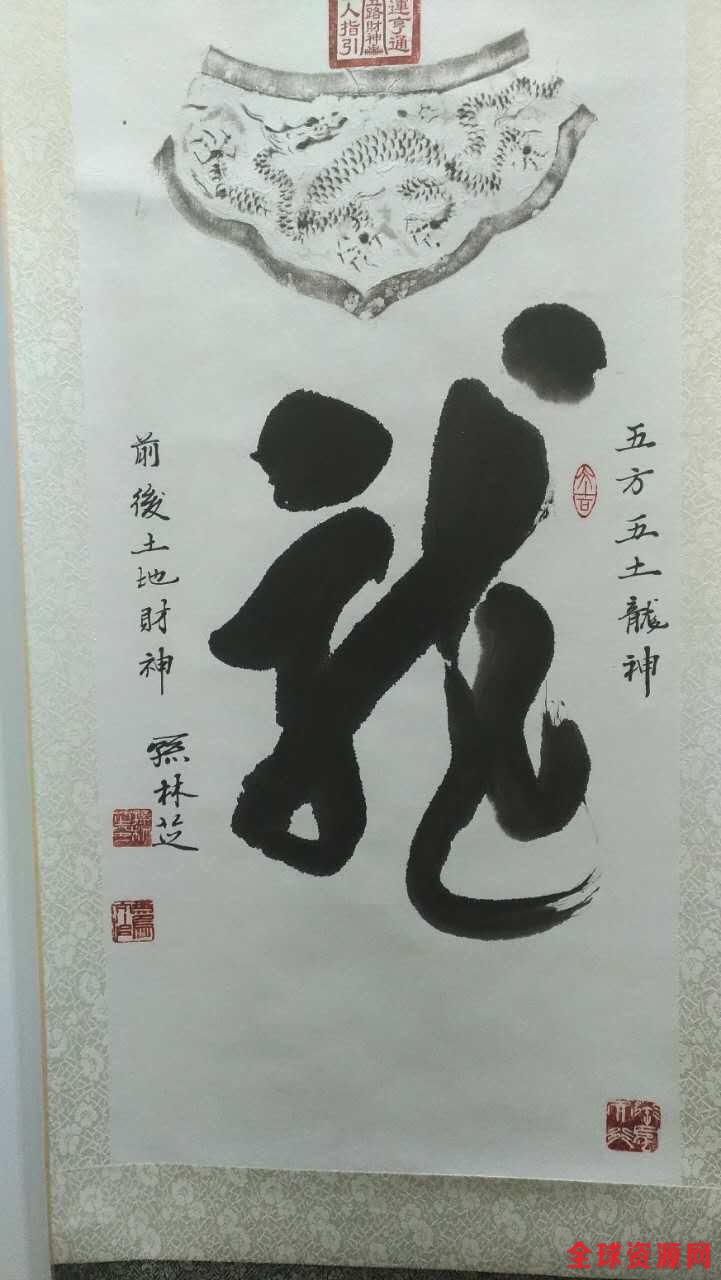 運亨通
五路財神
人指引
龍
五方五土龍神
前後土地財神
林芝
全球资源网